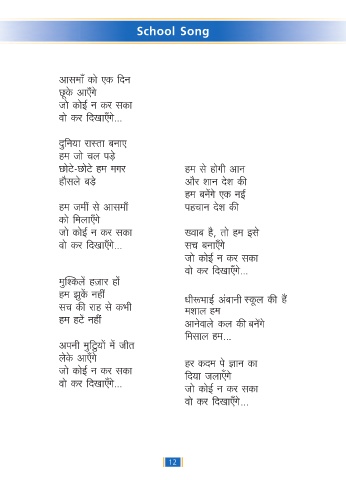 School Song
आसमाँ को एक दिन
छूके आएँगे
जो कोई न कर सका
वो कर दिखाएँगे...
दुनिया रास्ता बनाए
हम जो चल पड़े
छोटे-छोटे हम मगर
हौसले बड़े
हम जमीं से आसमाँ
को मिलाएँगे
जो कोई न कर सका
वो कर दिखाएँगे...
मुश्किलें हजार हों
हम झुकें नहीं
सच की राह से कभी
हम हटें नहीं
अपनी मुट्ठियों में जीत
लेके आएँगे
जो कोई न कर सका
वो कर दिखाएँगे...
हम से होगी आन
और शान देश की
हम बनेंगे एक नई
पहचान देश की
ख्वाब है, तो हम इसे
सच बनाएँगे
जो कोई न कर सका
वो कर दिखाएँगे...
धीरूभाई अंबानी स्कूल की हैं
मशाल हम
आनेवाले कल की बनेंगे
मिसाल हम...
हर कदम पे ज्ञान का
दिया जलाएँगे
जो कोई न कर सका
वो कर दिखाएँगे...
12